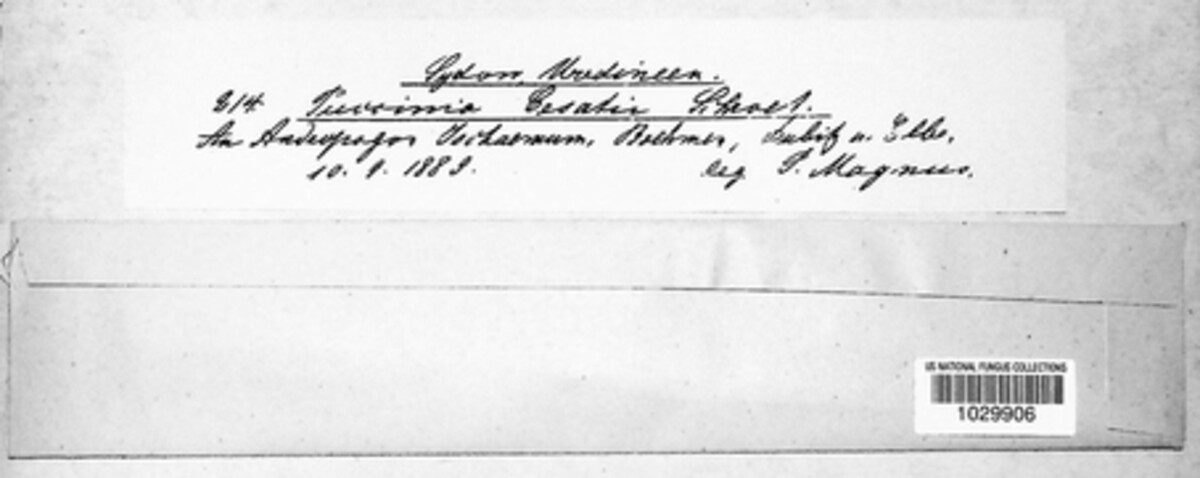 Sydow, Uredineen.
814. Puccinia Cesatii Schroet.
An Andropogon Ischaemum. Boehmen, a. Elbe.
10. 9. 1883. leg P. Magnus.
US NATIONAL FUNGUS COLLECTIONS
1029906